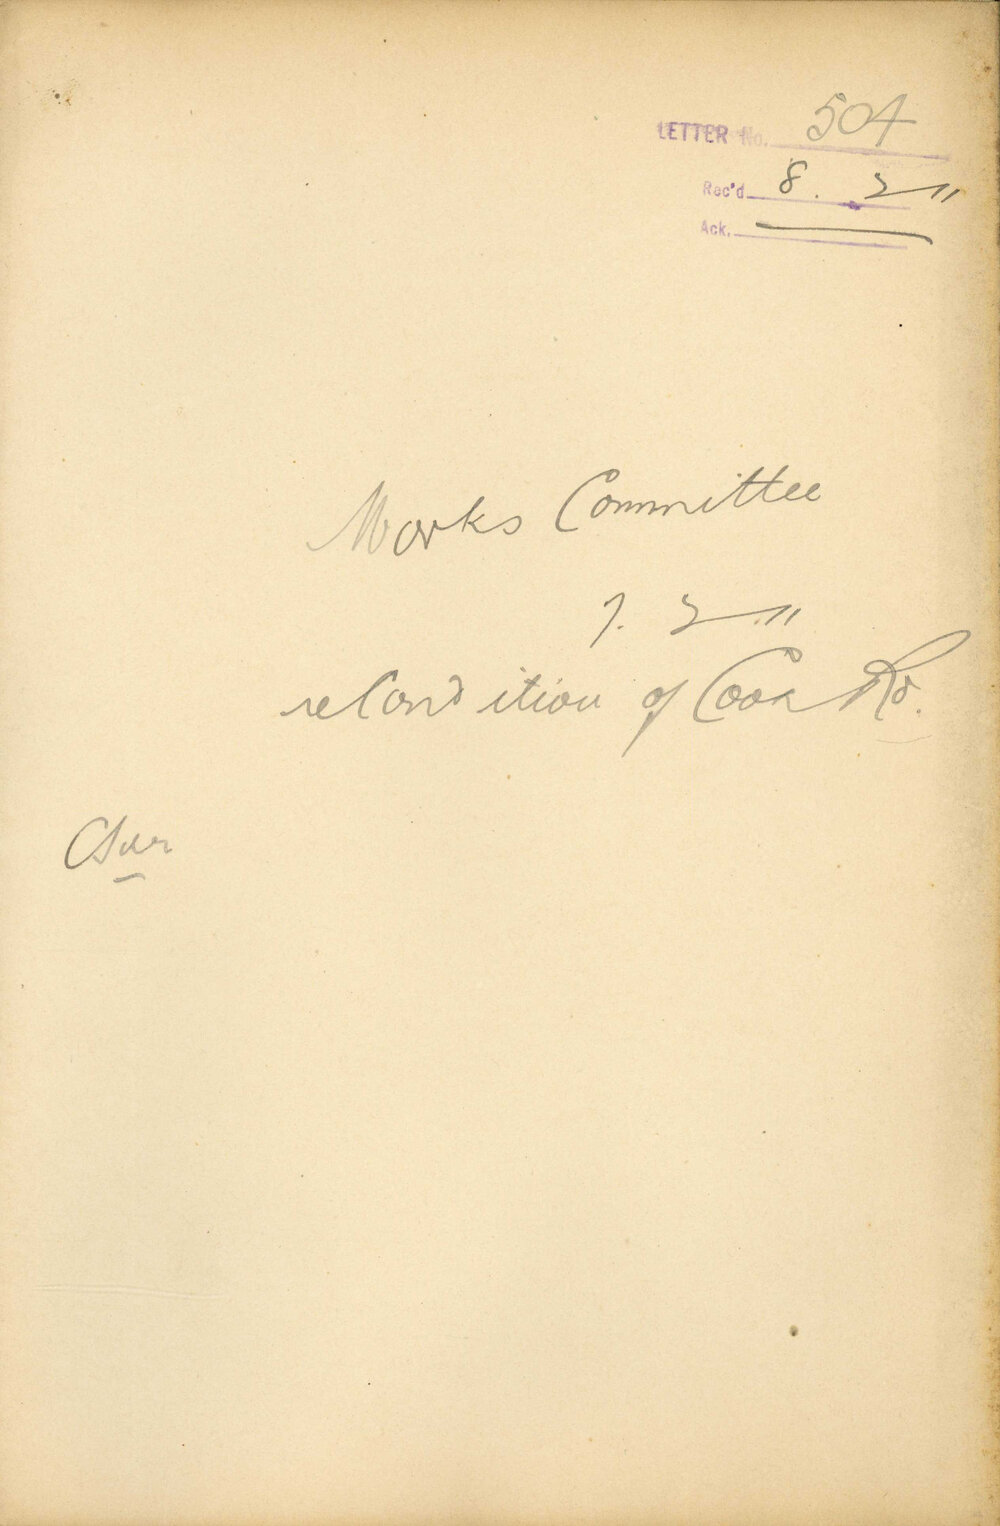 LETTER No. 504
Rec'd 8. 2 11
Ack.
Works Committee
7. 2 11
re Condition of Cook Rd.